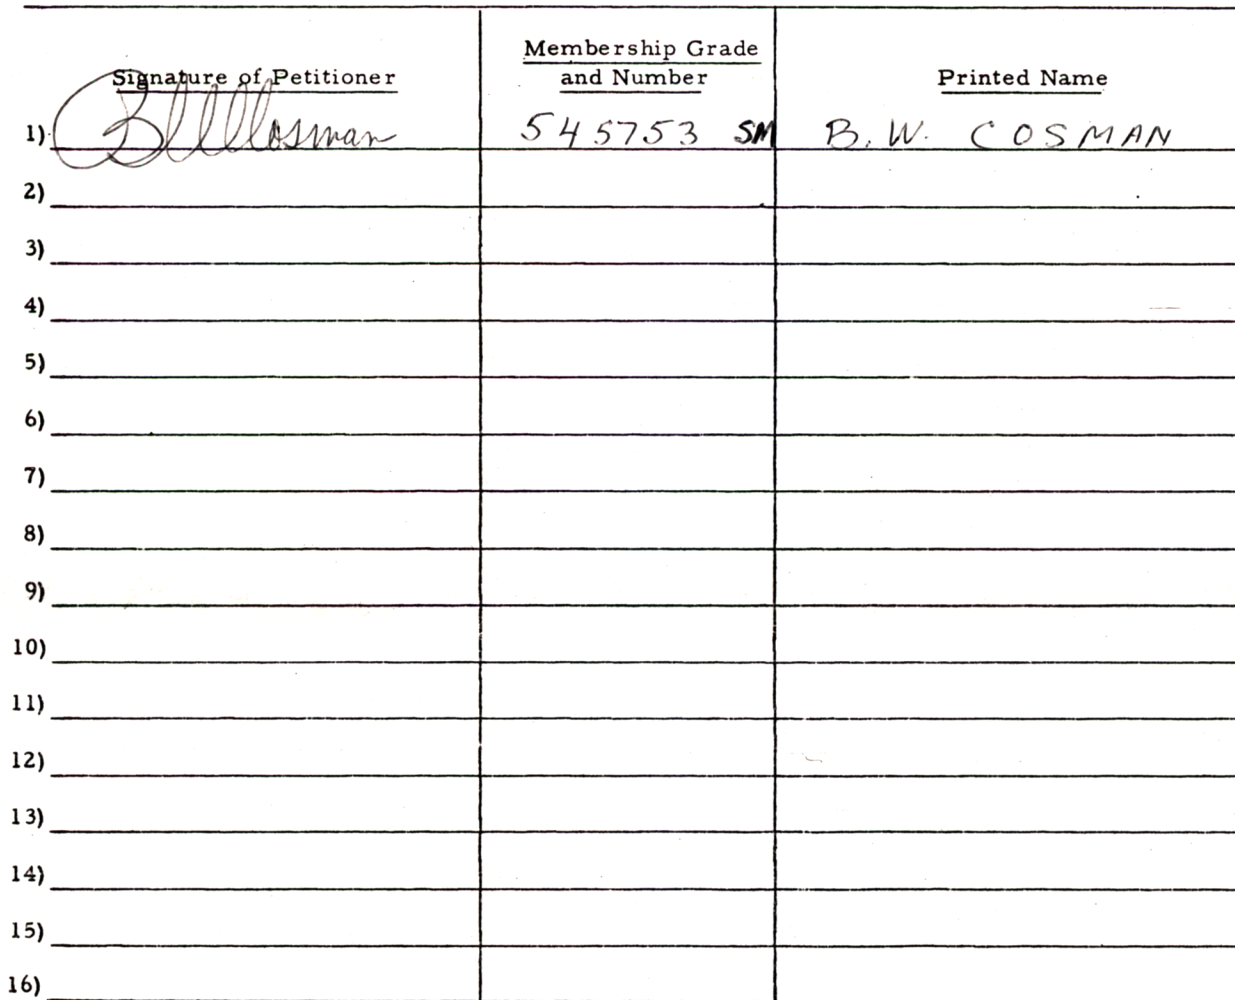 Signature of Petitioner Membership Grade and Number Printed Name
1) BWCosman 545753 SM B. W. COSMAN
2)
3)
4)
5)
6)
7)
8)
9)
10)
11)
12)
13)
14)
15)
16)